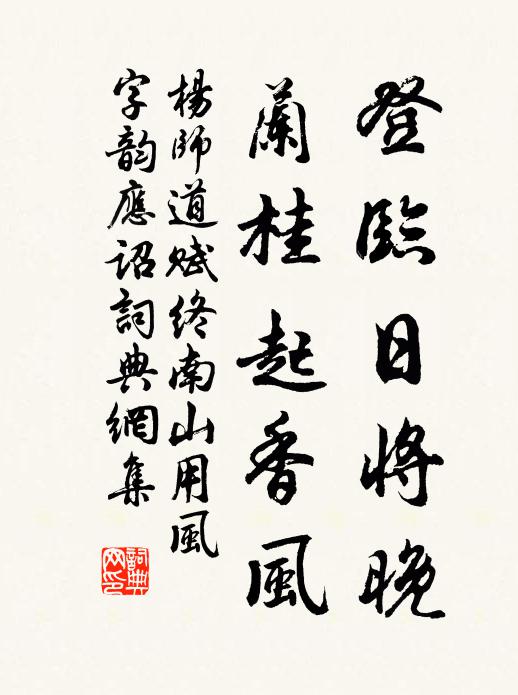 登臨日將晚
蘭桂起香風
楊師道賦終南山用風
字韵應詔詞典網集
詞典網印